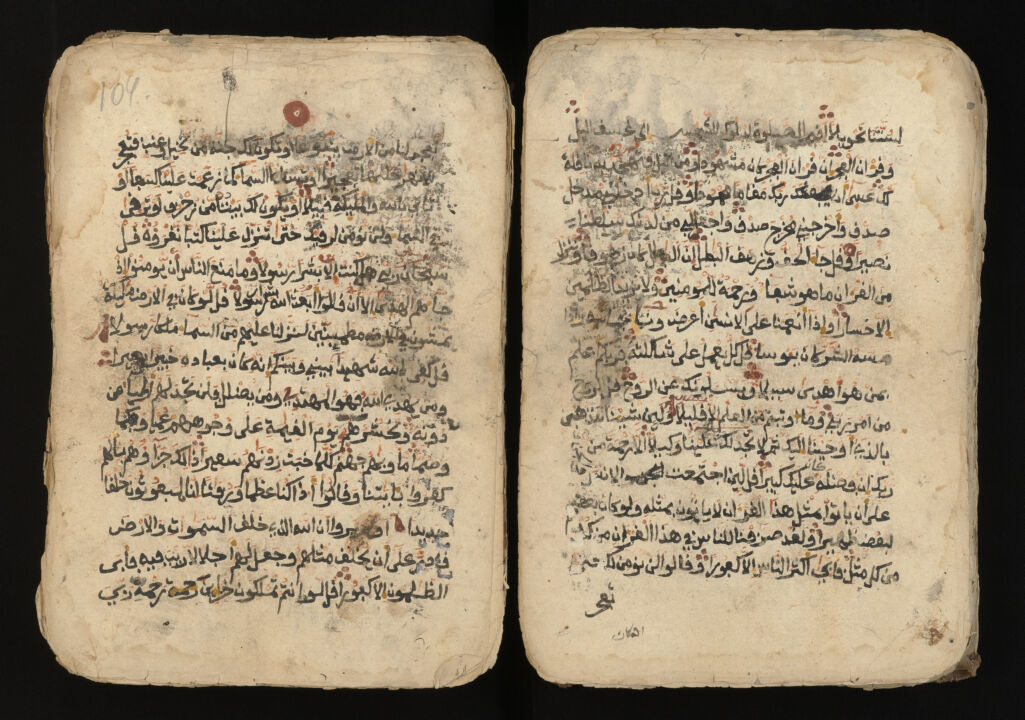 لسنتنا تحويلا اقم الصلوة لدلوك الشمس الى غسق اليل
وقران الفجر ان قران الفجر كان مشهودا ومن اليل فتهجد به نافلة
لك عسى ان يبعثك ربك مقاما محمودا وقل رب ادخلني مدخل
صدق واخرجني مخرج صدق واجعل لي من لدنك سلطنا
نصيرا وقل جا الحق وزهق البطل ان البطل كان زهوقا وننزل
من القران ما هو شفا ورحمة للمومنين ولا يزيد الظلمين
الا خسارا واذا انعمنا على الانسن اعرض ونئا بجانبه واذا
مسه الشر كان يوسا قل كل يعمل على شاكلته فربكم اعلم
بمن هو اهدى سبيلا ويسئلونك عن الروح قل الروح
من امر ربي وما اوتيتم من العلم الا قليلا ولين شينا لنذهبن
بالذي اوحينا اليك ثم لا تجد لك به علينا وكيلا الا رحمة من
ربك ان فضله كان عليك كبيرا قل لين اجتمعت الجن والانس
على ان ياتوا بمثل هذا القران لا ياتون بمثله ولو كان بعضهم
لبعض ظهيرا ولقد صرفنا للناس في هذا القران
من كل مثل فابى اكثر الناس الا كفورا وقالوا لن نومن لك حتى
تفجر
104
تفجر لنا من الارض ينبوعا او تكون لك جنة من نخيل وعنب فتفجر
الانهر خللها تفجيرا او تسقط السما كما زعمت علينا كسفا او
تاتي بالله والمليكة قبيلا او يكون لك بيت من زخرف او ترقى
في السما ولن نومن لرقيك حتى تنزل علينا كتبا نقروه قل
سبحان ربي هل كنت الا بشرا رسولا وما منع الناس ان يومنوا اذ
جاهم الهدى الا ان قالوا ابعث الله بشرا رسولا قل لو كان في الارض مليكة
يمشون مطمينين لنزلنا عليهم من السما ملكا رسولا
قل كفى بالله شهيدا بيني وبينكم انه كان بعباده خبيرا بصيرا
ومن يهد الله فهو المهتد ومن يضلل فلن تجد لهم اوليا من
دونه ونحشرهم يوم القيمة على وجوههم عميا وبكما
وصما ماويهم جهنم كلما خبت زدنهم سعيرا ذلك جزاوهم بانهم
كفروا بايتنا وقالوا اذا كنا عظما ورفتا انا لمبعوثون خلقا
جديدا اولم يروا ان الله الذي خلق السموت والارض
قادر على ان يخلق مثلهم وجعل لهم اجلا لا ريب فيه فابى
الظلمون الا كفورا قل لو انتم تملكون خزاين رحمة ربي